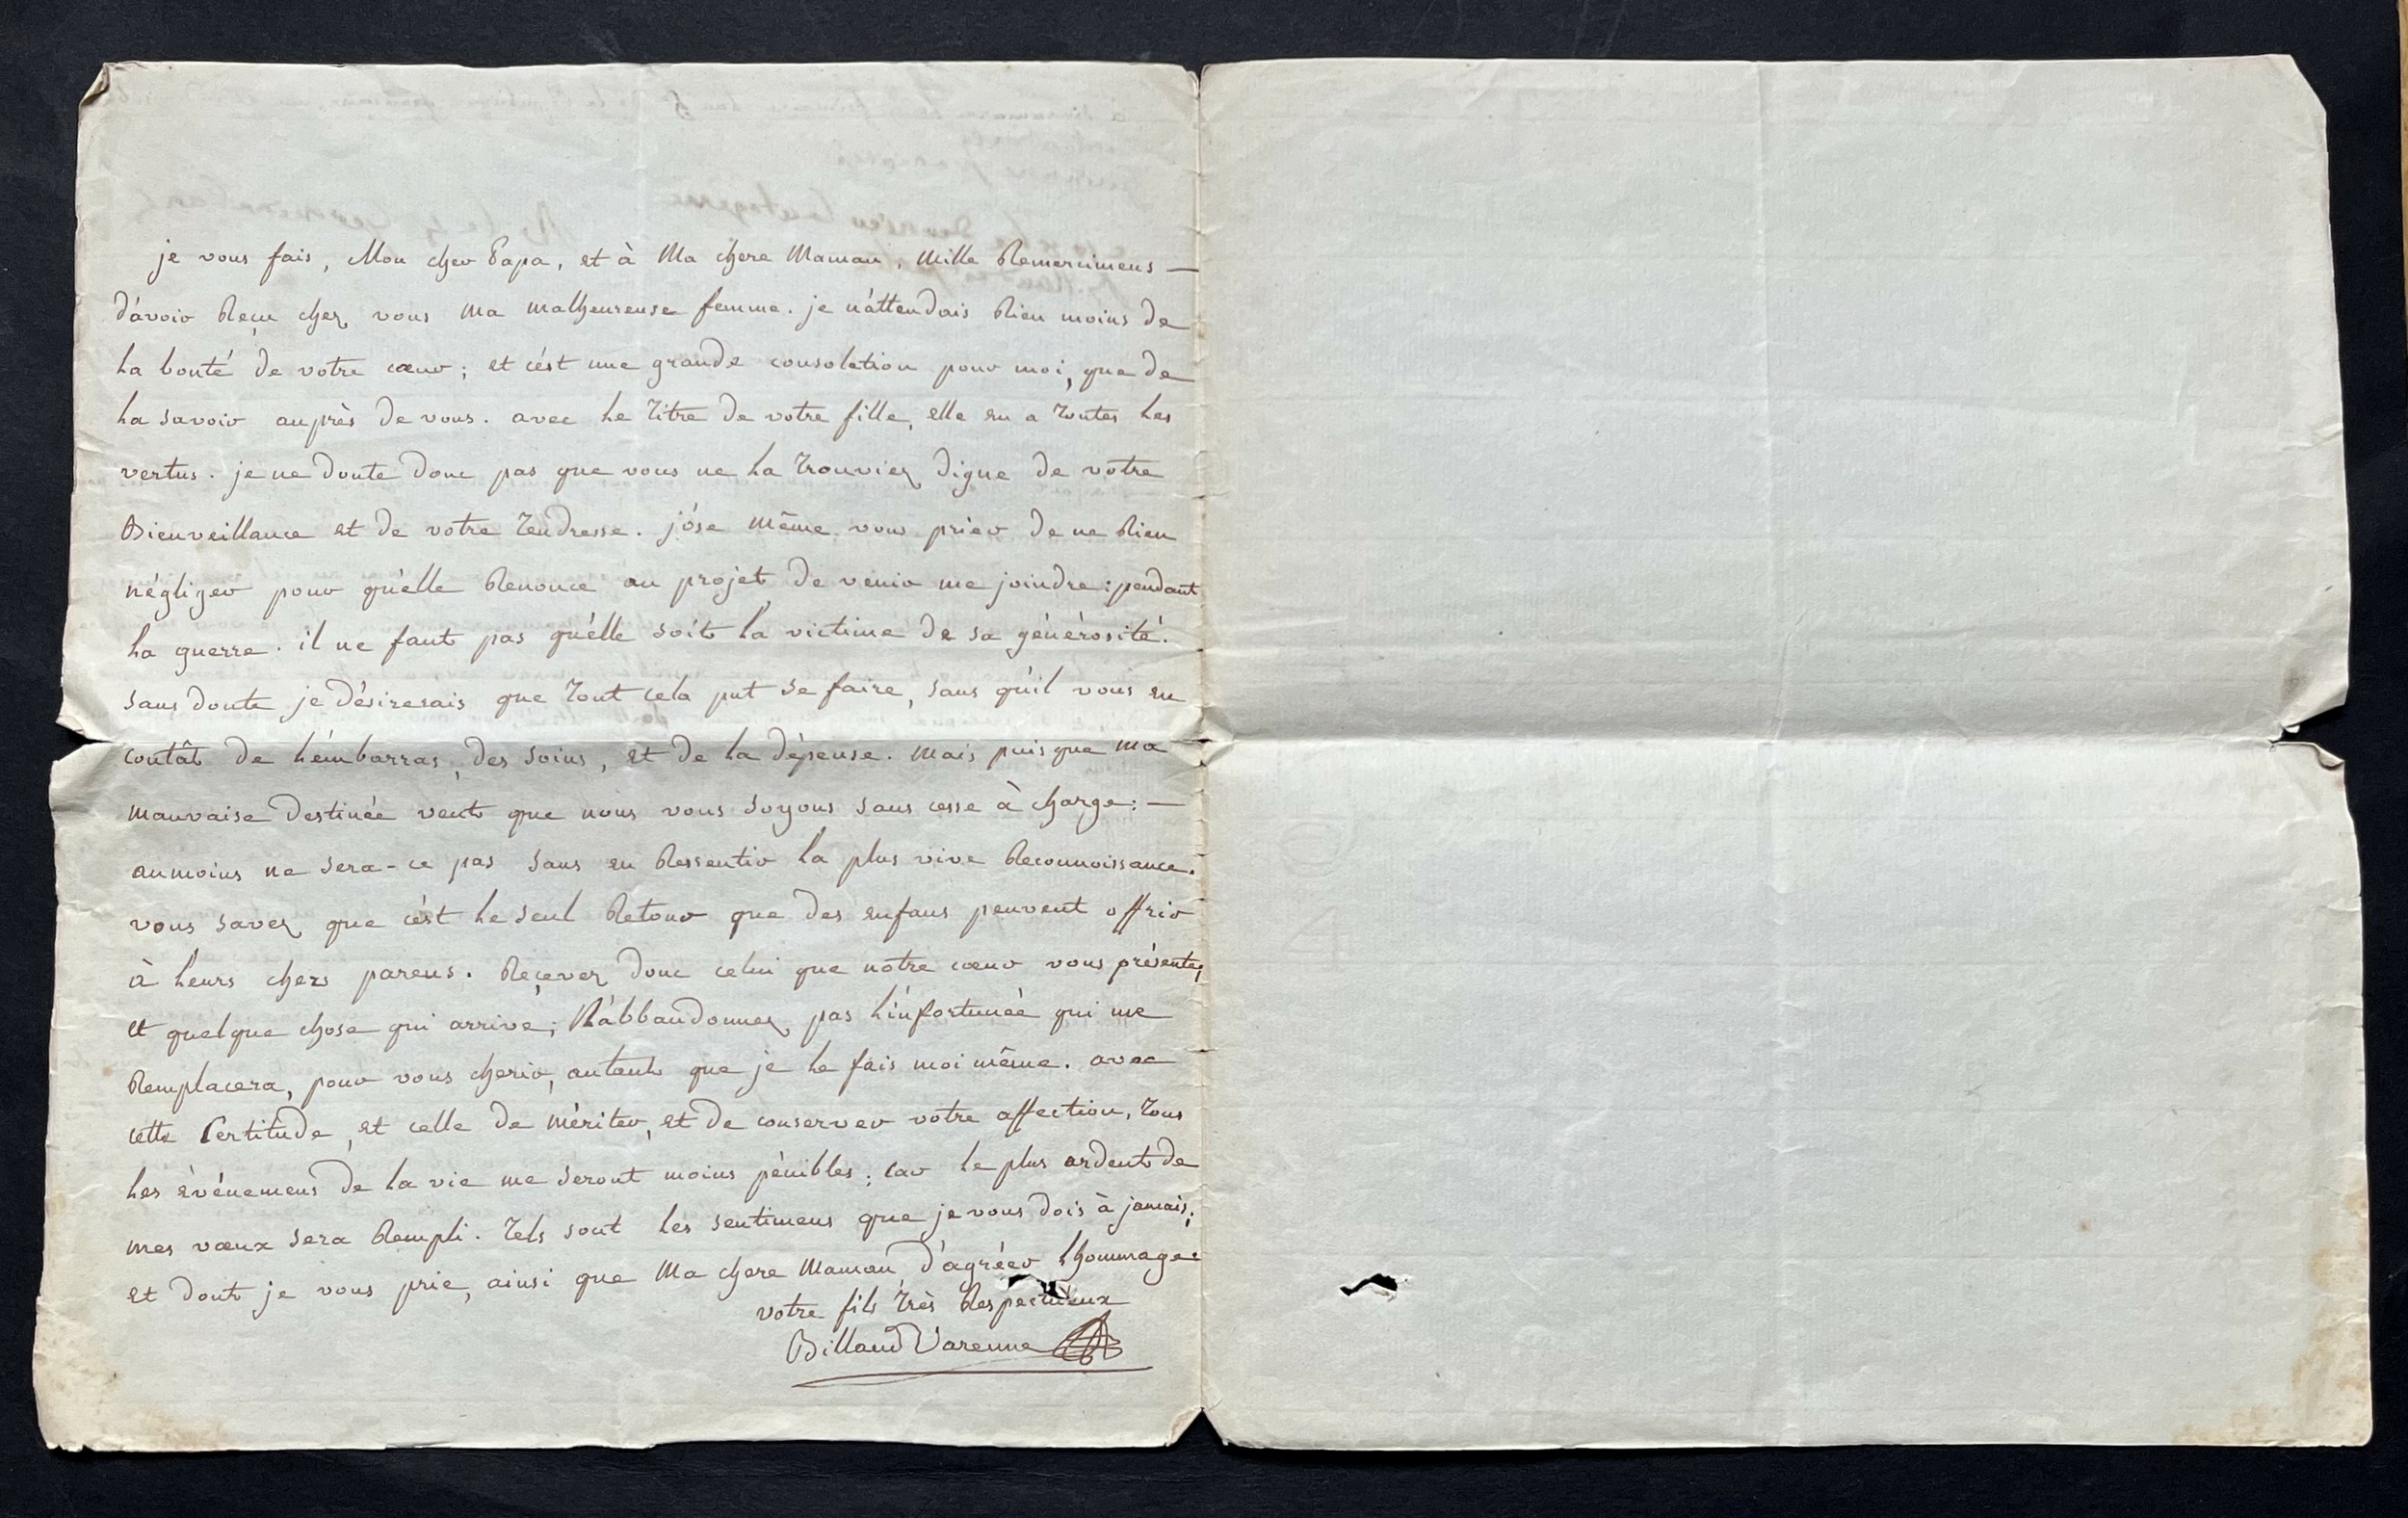 je vous fais, Mon cher Papa, et à Ma chere Maman, Mille Remercimens —
d'avoir Reçu chez vous ma malheureuse femme. je n'attendais Rien moins de
la bonté de votre cœur ; et c'ést une grande consolation pour moi, que de
la savoir auprès de vous. avec le titre de votre fille, elle en a toutes les
vertus. je ne doute donc pas que vous ne la trouviez digne de votre
Bienveillance et de votre tendresse. j'óse Même vous prier de ne Rien
négliger pour qu'élle Renonce au projet de venir me joindre : pendant
la guerre. il ne faut pas qu'élle soit la victime de sa générosité.
sans doute je désirerais que tout cela put se faire, sans qu'il vous en
coutât de l'émbarras, des soins, et de la dépense. Mais puisque ma
mauvaise destinée veut que nous vous soyons sans cesse à charge : —
aumoins ne sera-ce pas sans en Ressentir la plus vive Reconnoissance.
vous savez que c'ést le seul Retour que des enfans peuvent offrir
à leurs chers parens. Reçevez donc celui que notre cœur vous présente,
et quelque chose qui arrive ; N'abbandonnez pas l'infortunée qui me
Remplacera, pour vous cherir, autant que je le fais moi même. avec
cette Certitude, et celle de Mériter, et de conserver votre affection, tous
les événemens de la vie me seront moins pénibles ; car le plus ardent de
mes vœux sera Rempli. tels sont les sentimens que je vous dois à jamais,
et dont je vous prie, ainsi que Ma chere Maman d'agréer l'hommage.
votre fils très Respectueux
Billaud Varenne